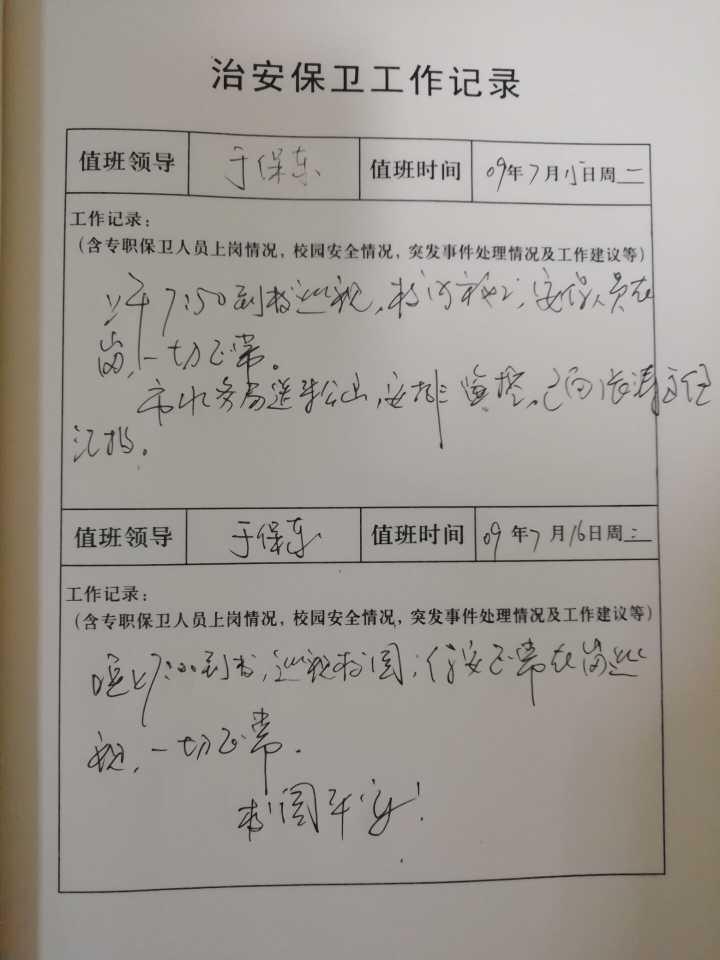 治安保卫工作记录
值班领导 于保东 值班时间 09年7月15日周二
工作记录：
（含专职保卫人员上岗情况，校园安全情况，突发事件处理情况及工作建议等）
7:50到校巡视，安保人员在
岗，一切正常。
市水务局送，安排，已向主任
汇报。
值班领导 于保东 值班时间 09年7月16日周三
工作记录：
（含专职保卫人员上岗情况，校园安全情况，突发事件处理情况及工作建议等）
晚上7:00到校，巡视校园，保安正常在岗巡
视，一切正常.
校园平安！